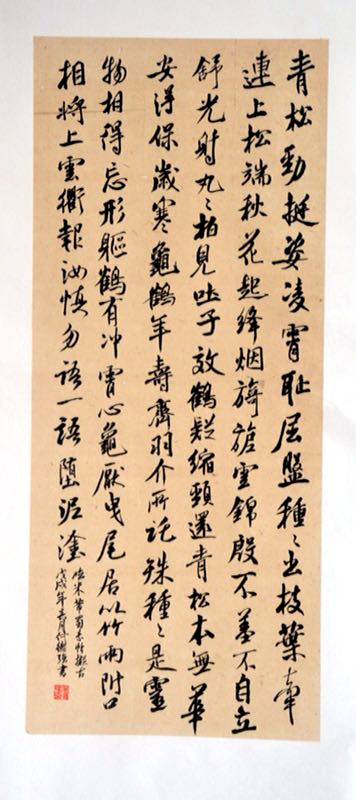 青松勁挺姿凌霄耻屈盤種〻出枝葉牽
連上松端秋花起絳烟旖旎雲錦殷不羞不自立
舒光射丸〻柏見吐子效鶴疑縮頸還青松本無華
安得保歲寒龜鶴年壽齊羽介所託殊種〻是靈
物相得忘形軀鶴有冲霄心龜厭曳尾居以竹兩附口
相將上雲衢報汝慎勿語一語墮泥塗
臨米芾蜀素帖擬古
戊戌年月書